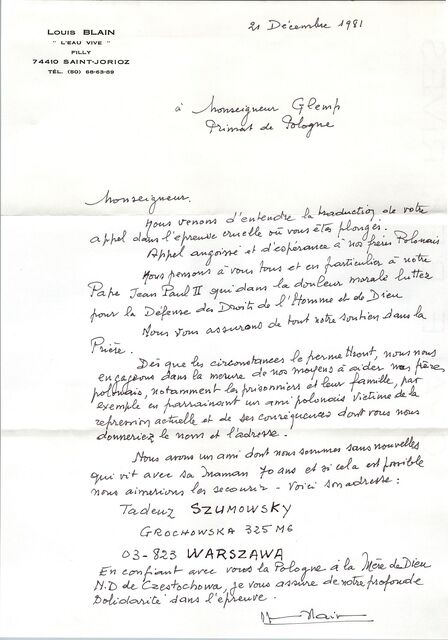 LOUIS BLAIN
" L'EAU VIVE "
FILLY
74410 SAINT-JORIOZ
TÉL. (50) 68-63-69
21 Décembre 1981
à Monseigneur Glemp
Primat de Pologne
Monseigneur.
Nous venons d'entendre la traduction de votre
appel dans l'épreuve cruelle où vous êtes plongés.
Appel angoissé et d'espérance à nos frères Polonais
Nous pensons à vous tous et en particulier à notre
Pape Jean Paul II qui dans la douleur morale lutter
pour la Défense des Droits de l'Homme et de Dieu
Nous vous assurons de tout notre soutien dans la
Prière.
Dès que les circonstances le permettront, nous nous
engageons dans la mesure de nos moyens à aider nos frères
polonais, notamment les prisonniers et leur famille, par
exemple en parrainant un ami polonais victime de la
repression actuelle et de ses conséquences dont vous nous
donneriez le nom et l'adresse.
Nous avons un ami dont nous sommes sans nouvelles
qui vit avec sa maman 70 ans et si cela est possible
nous aimerions les secourir - Voici son adresse :
Tadeuz SZUMOWSKY
GROCHOWSKA 325 M6
03-823 WARSZAWA
En confiant avec vous la Pologne à la Mère de Dieu
N.D de Częstochowa, je vous assure de notre profonde
Solidarité dans l'épreuve.
Blain